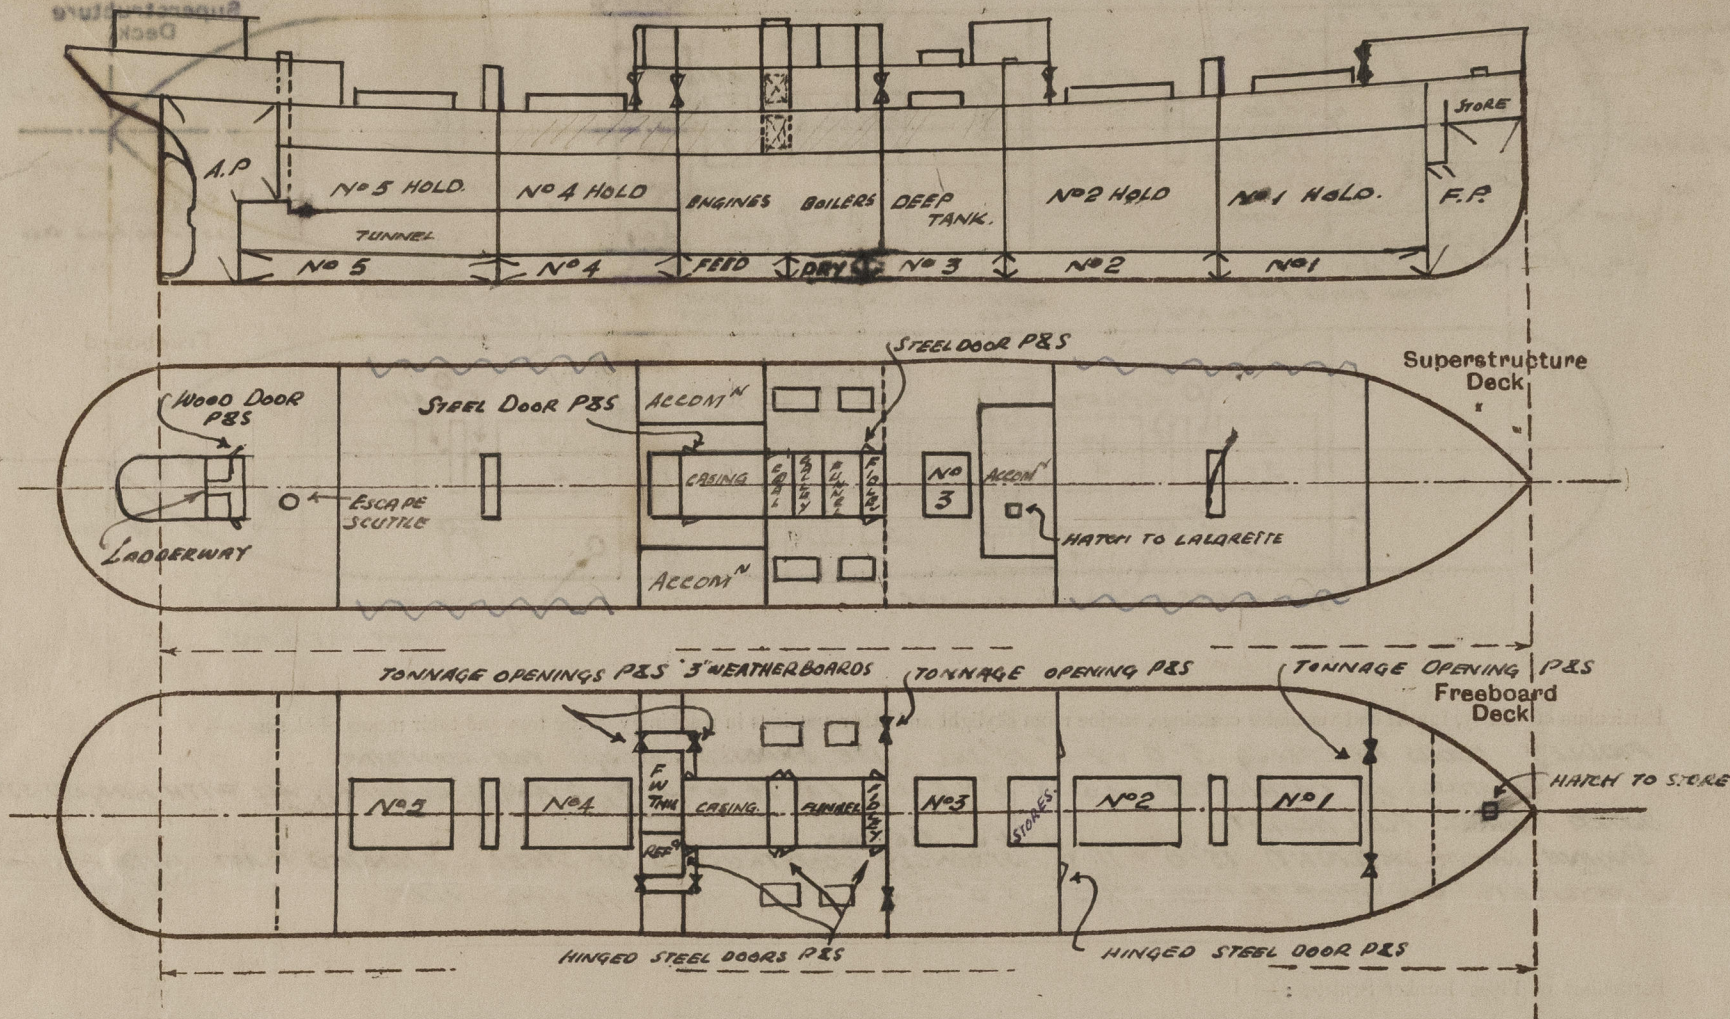 A.P
Nº 5 HOLD.
Nº 4 HOLD
ENGINES
BOILERS
DEEP
TANK.
Nº 2 HOLD
Nº 1 HOLD.
STORE
F.P.
TUNNEL
Nº 5
Nº 4
FEED
DRY
Nº 3
Nº 2
Nº 1
STEEL DOOR P&S
Superstructure
Deck
WOOD DOOR
P&S
STEEL DOOR P&S
ACCOMᴺ
CASING
GALLEY
FUNNEL
FIDLEY
Nº
3
ACCOMᴺ
ESCAPE
SCUTTLE
LADDERWAY
HATCH TO LAZARETTE
ACCOMᴺ
TONNAGE OPENINGS P&S 3" WEATHERBOARDS
TONNAGE OPENING P&S
TONNAGE OPENING P&S
Freeboard
Deck
HATCH TO STORE
Nº5
Nº4
F
W
TNK
CASING.
FUNNEL
FIDLEY
Nº3
STORES.
Nº2
Nº1
REFᴳ
HINGED STEEL DOORS P&S
HINGED STEEL DOOR P&S